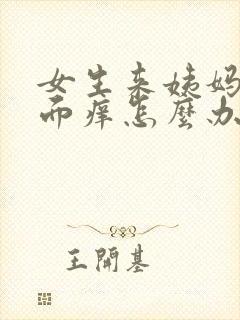 女生来姨妈
而痒怎麼办
王開基